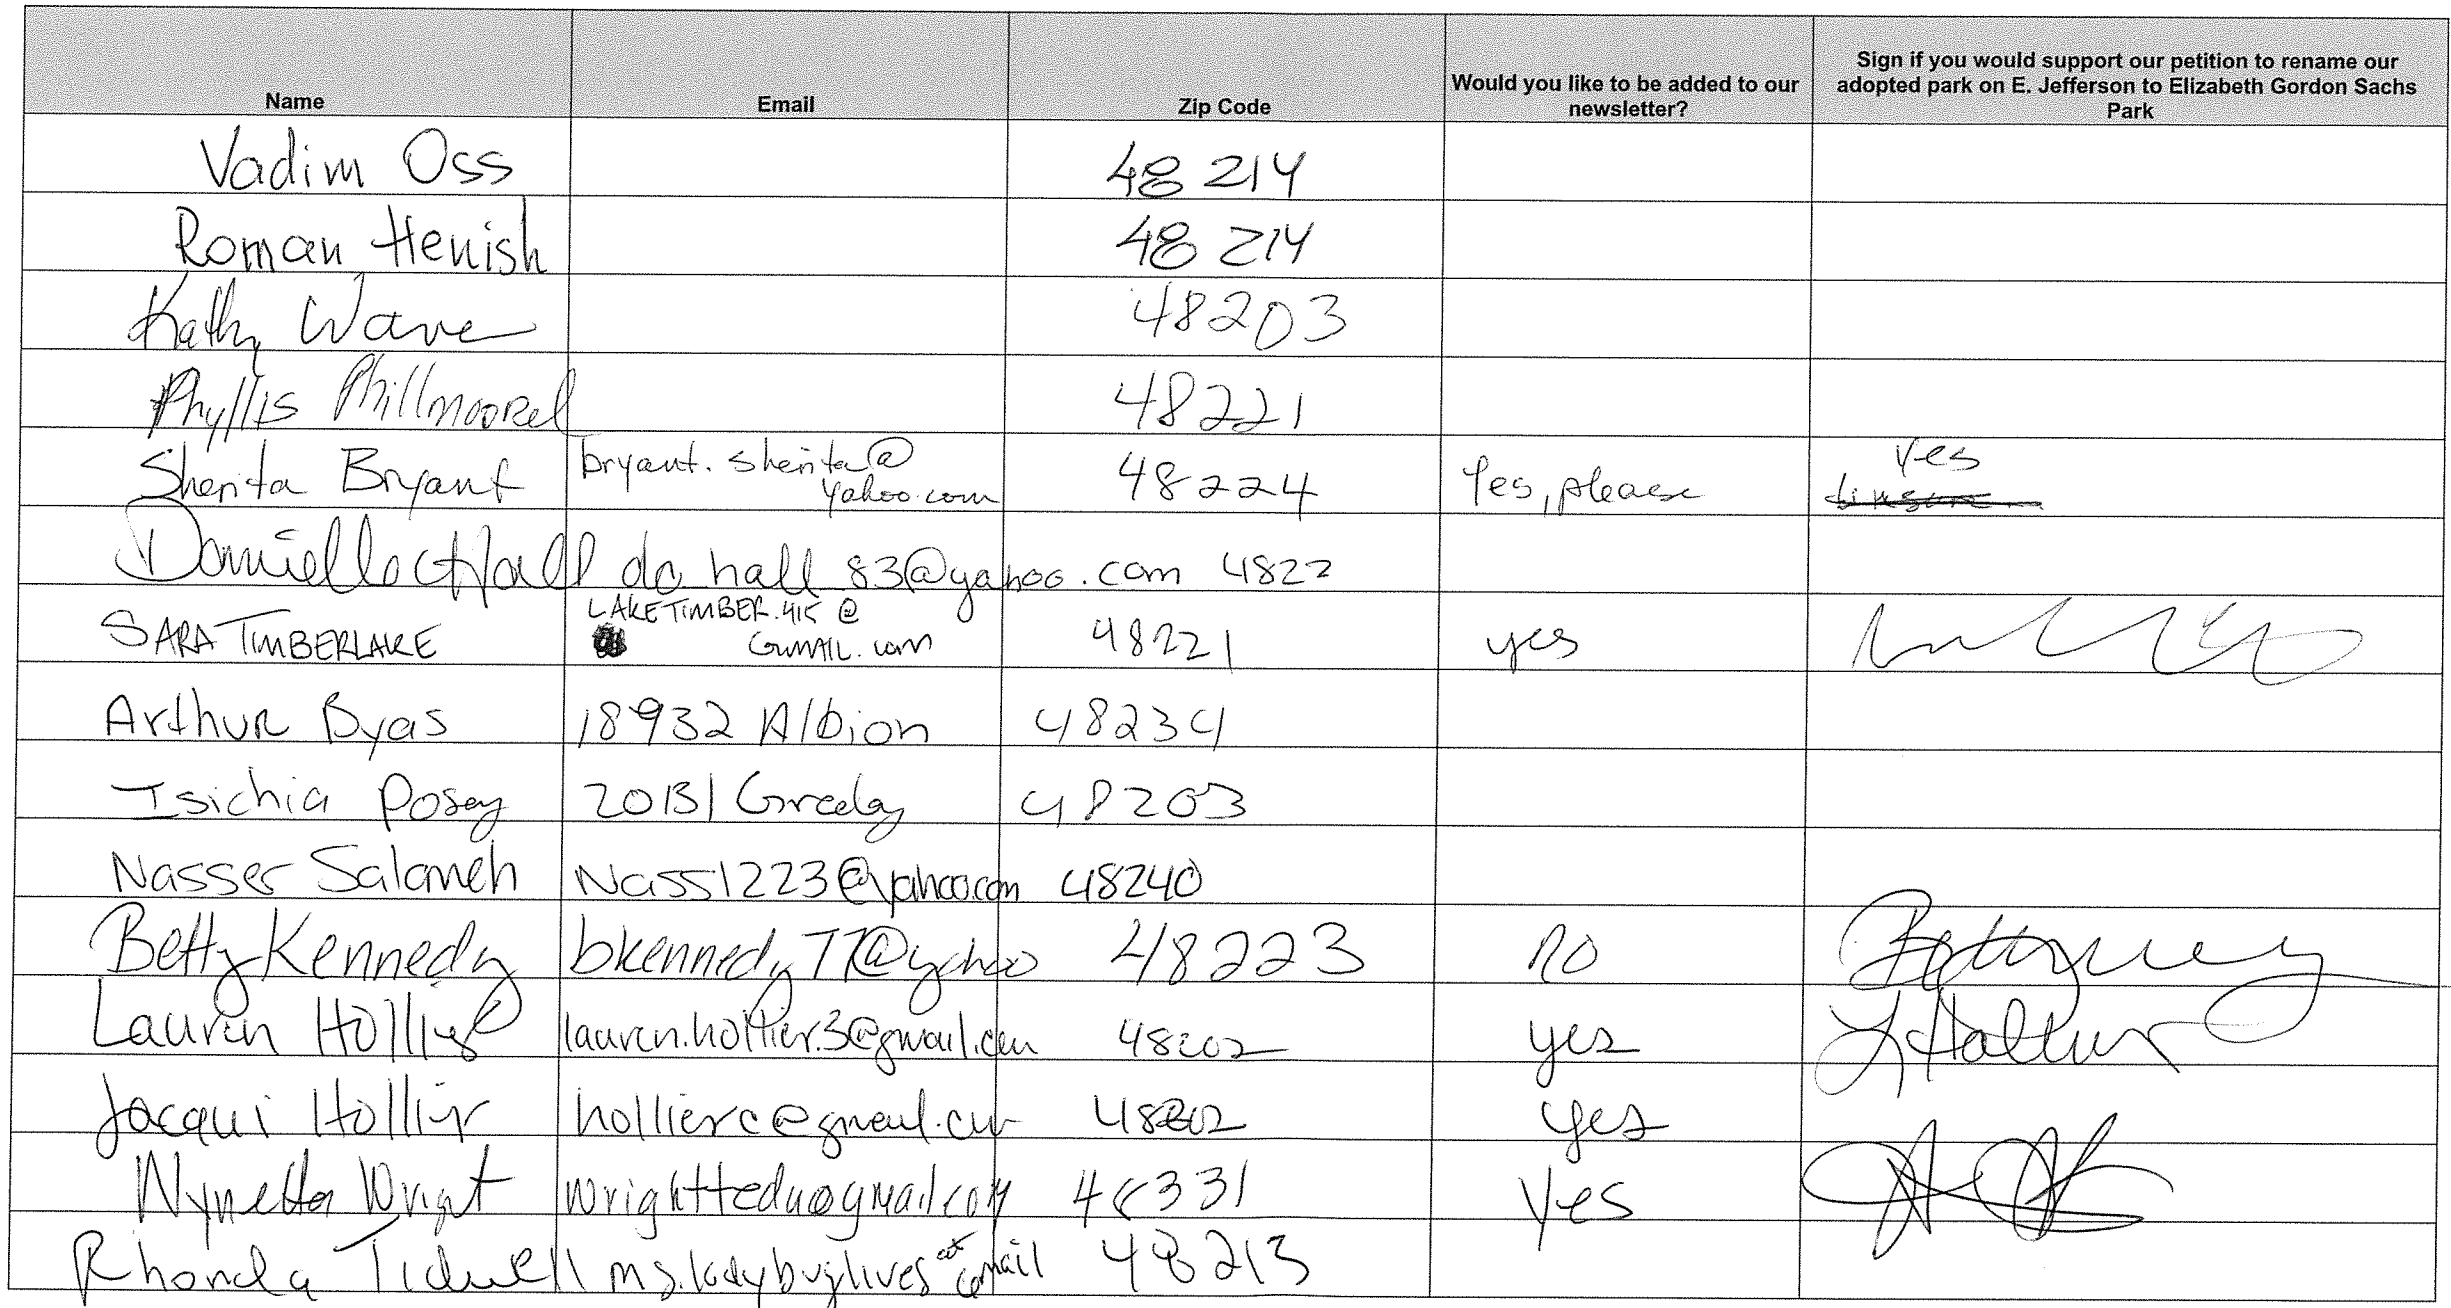 Name Email Zip Code Would you like to be added to our newsletter? Sign if you would support our petition to rename our adopted park on E. Jefferson to Elizabeth Gordon Sachs Park
Vadim Oss 48214
Roman Henish 48214
Kathy Wave 48203
Phyllis Phillmoore 48221
Sherita Bryant bryant.sherita@yahoo.com 48224 Yes, please yes
Danielle Hall da hall 83@yahoo.com 4822
SARA TIMBERLAKE LAKETIMBER.415@GMAIL.com 48221 yes
Arthur Byas 18932 Albion 48234
Isichia Posey 20131 Greeley 48203
Nasser Salameh Nass1223@yahoo.com 48240
Betty Kennedy bkennedy77@yahoo 48223 no
Lauren Hollier lauren.hollier.3@gmail.com 48202 yes
Jacqui Hollier hollierc@gmail.com 48202 yes
Nynetta Wright wrighttedu@gmail.com 48331 Yes
Rhonda Tidwell ms.ladybuglives at Gmail 48213